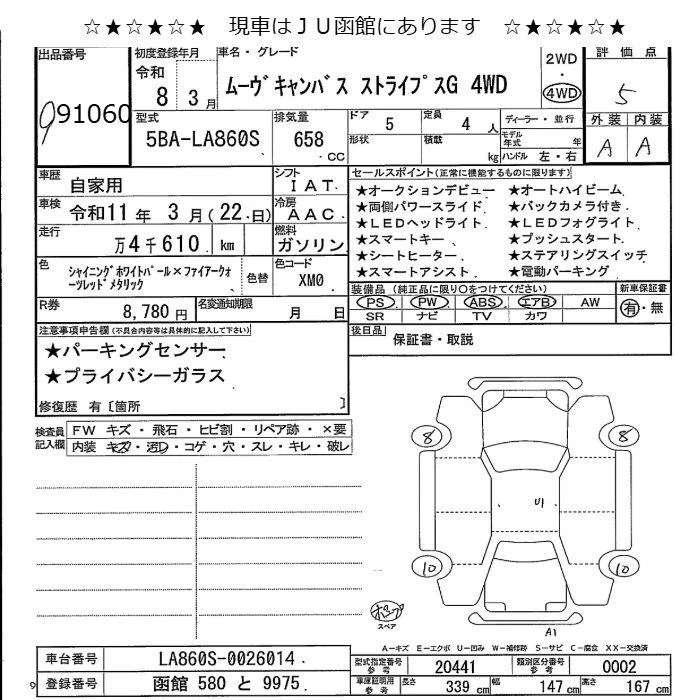 ☆★☆★☆★ 現車はＪＵ函館にあります ☆★☆★☆★
出品番号 初度登録年月 車名・グレード 評価点
91060 令和 8 3月 ムーヴキャンバス ストライプスG 4WD 2WD・4WD 5
型式 排気量 ドア 定員 ディーラー・並行 外装 内装
5BA-LA860S 658 CC 5 4人 モデル年式 年 A A
形状 積載 kg ハンドル 左・右
車歴 自家用 シフト IAT セールスポイント(正常に機能するものに限ります)
車検 令和11年 3月(22日) 冷房 AAC
★オークションデビュー ★オートハイビーム
★両側パワースライド ★バックカメラ付き
★ＬＥＤヘッドライト ★ＬＥＤフォグライト
走行 万4千610 km 燃料 ガソリン
★スマートキー ★プッシュスタート
★シートヒーター ★ステアリングスイッチ
★スマートアシスト ★電動パーキング
色 シャイニングホワイトパール×ファイアークォーツレッドメタリック 色替 色コード XM0
装備品 (純正品に限り○をつけてください) 新車保証書
PS PW ABS エアB AW 有・無
SR ナビ TV カワ
R券 8,780円 名変通知期限 月 日
後日品 保証書・取説
注意事項申告欄(不具合内容等は具体的に記入して下さい)
★パーキングセンサー
★プライバシーガラス
修復歴 有〔箇所 〕
検査員記入欄 FW キズ・飛石・ヒビ割・リペア跡・×要
内装 キズ・汚れ・コゲ・穴・スレ・キレ・破レ
8 8
U1
10 10
スペア
A1
A－キズ E－エクボ U－凹み W－補修跡 S－サビ C－腐食 XX－交換済
車台番号 LA860S-0026014 型式指定番号 参考 20441 類別区分番号 参考 0002
9 登録番号 函館 580 と 9975 車庫証明用 参考 長さ 339 cm 幅 147 cm 高さ 167 cm